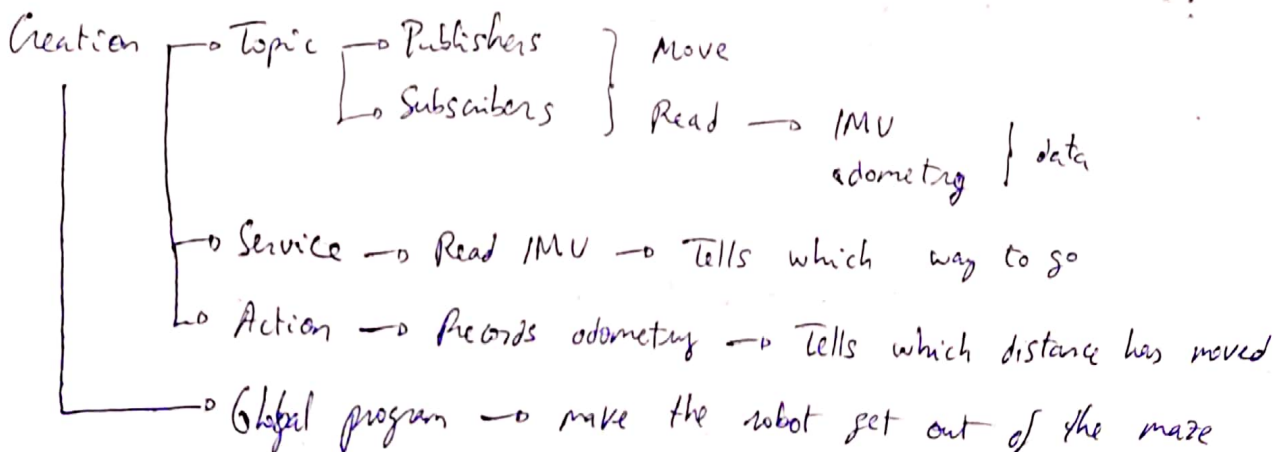 Creation → Topic → Publishers } Move
→ Subscribers } Read → IMU
odometry } data
→ Service → Read IMU → Tells which way to go
→ Action → Records odometry → Tells which distance has moved
→ Global program → make the robot get out of the maze